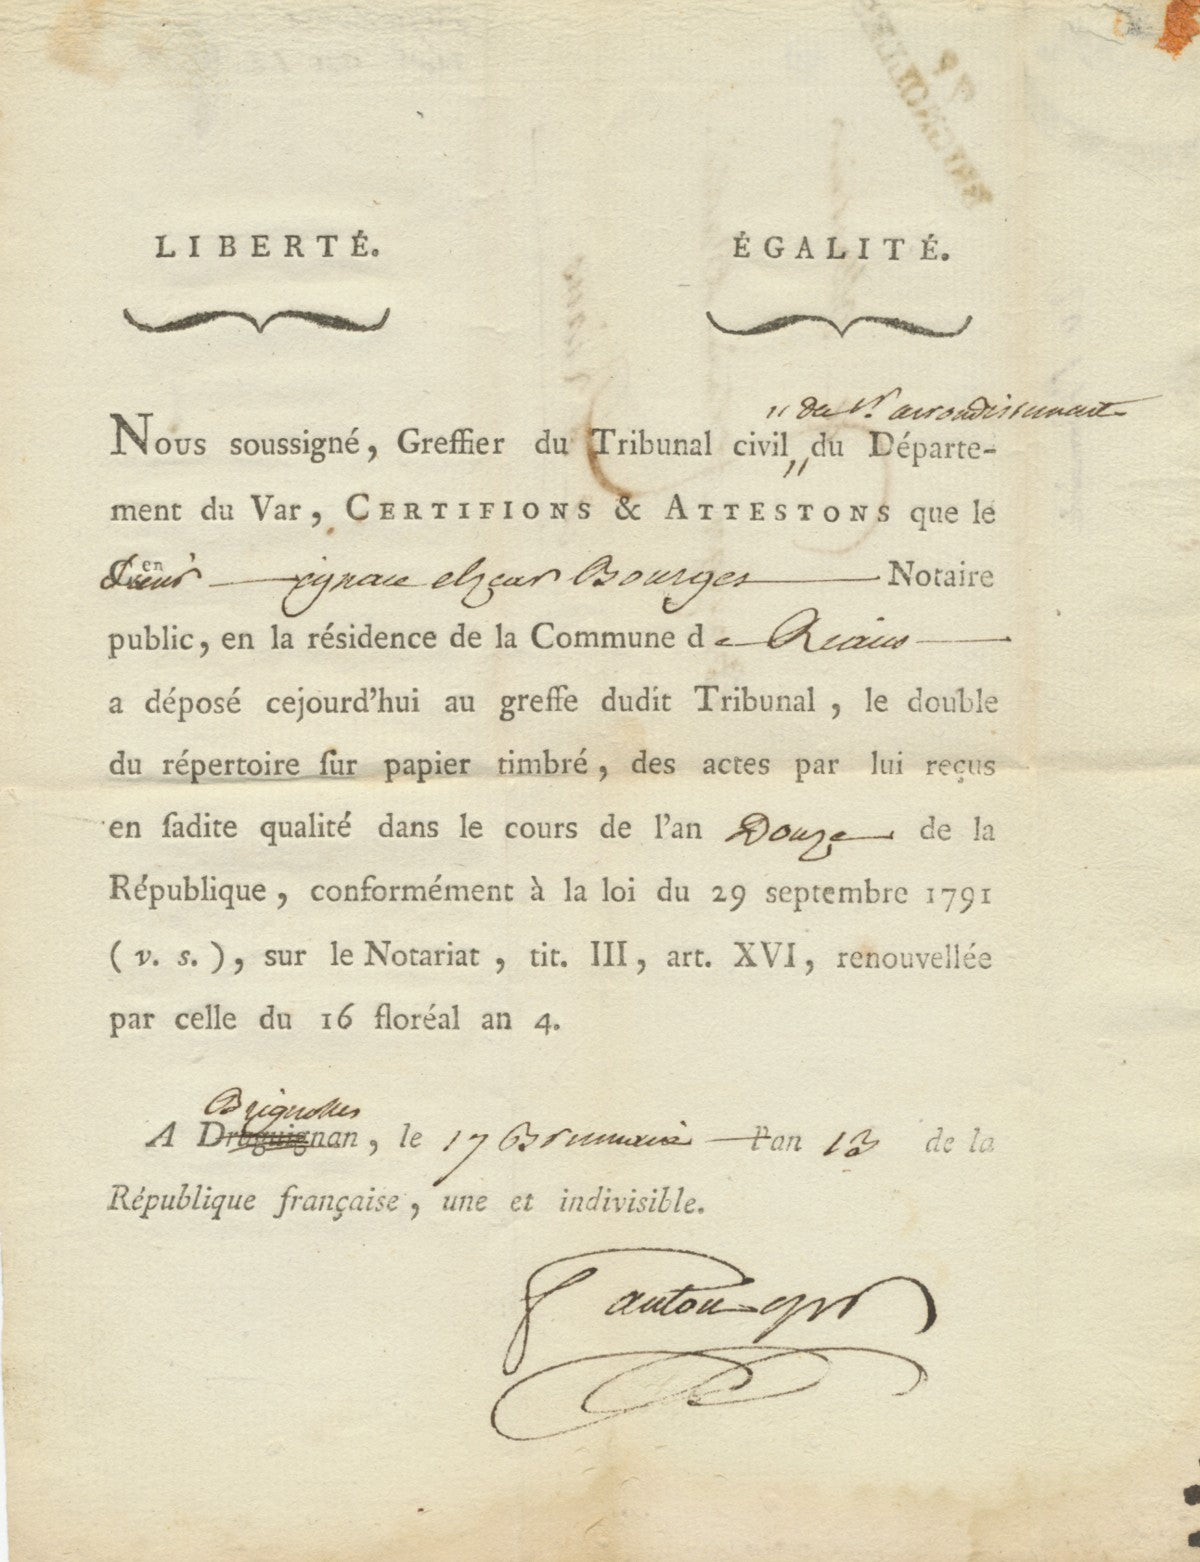 LIBERTÉ. ÉGALITÉ.
" du 1.er arrondissement
Nous soussigné, Greffier du Tribunal civil " du Départe-
ment du Var, CERTIFIONS & ATTESTONS que le
Sieur ignace elzear Bourges Notaire
public, en la résidence de la Commune de Rians
a déposé cejourd'hui au greffe dudit Tribunal, le double
du répertoire ſur papier timbré, des actes par lui reçus
en ſadite qualité dans le cours de l'an Douze de la
République, conformément à la loi du 29 septembre 1791
(v. s.), sur le Notariat, tit. III, art. XVI, renouvellée
par celle du 16 floréal an 4.
Brignolles
A Draguignan, le 17 Brumaire l'an 13 de la
République française, une et indivisible.